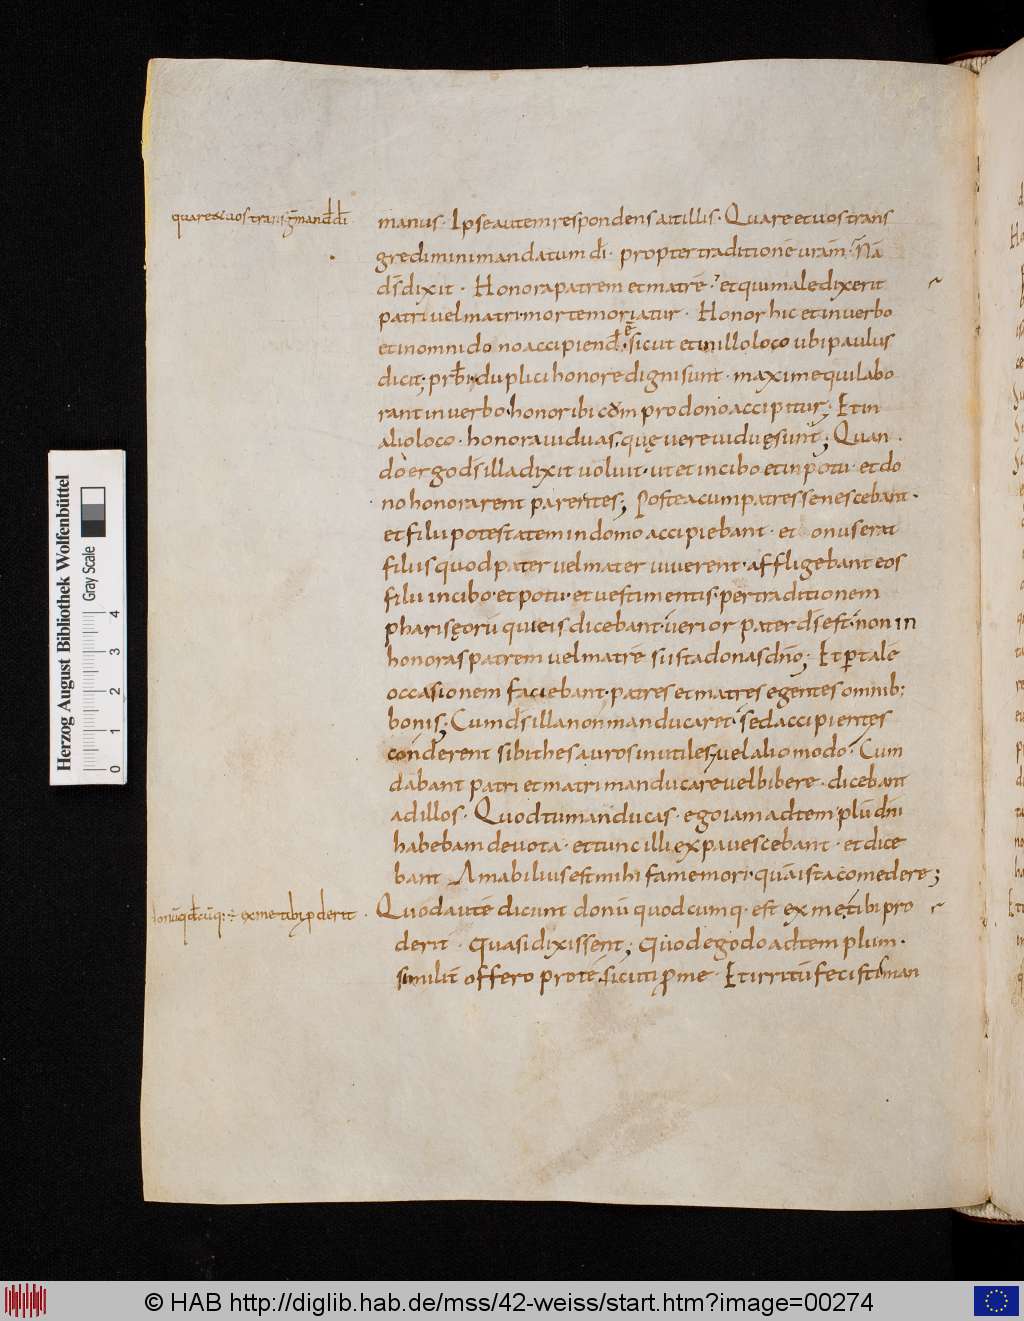 quare & uos transḡ mand̄ dī
manus· Ipse autem respondens ait illis· Quare et uos trans
gredimini mandatum dī· propter traditionē uram̄· Nā
ds̄ dixit· Honora patrem et matrē· et qui male dixerit
patri uel matri· morte moriatur· Honor hic et in uerbo
et in omni dono accipiend̄ ē· sicut et in illo loco ubi paulus
dicit; prb̄ri duplici honore digni sunt· maxime qui labo
rant in uerbo· honor ibi pro dono accipitur; Et in
alio loco· honora uiduas, quę uere uiduę sunt; Quan
do ergo ds̄ illa dixit uoluit· ut et in cibo et in potu· et do
no honorarent parentes; Postea cum patres senescebant·
et filii potestatem in domo accipiebant· et onus erat
filiis quod pater uel mater uiuerent· affligebant eos
filii in cibo· et potu· et uestimentis· per traditionem
pharisęorū qui eis dicebant· uerior pater ds̄ est· non in
honoras patrem uel matrē si ista donas dn̄o; Et p̄ talē
occasionem faciebant· patres et matres egentes omnib:
bonis; Cum ds̄ illa non manducaret· sed accipientes
conderent sibi thesauros inutiles, uel alio modo· Cum
dabant patri et matri manducare uel bibere· dicebant
ad illos· Quod tu manducas· ego iam ad templū dn̄i
habebam deuota· et tunc illi expauescebant· et dice
bant Amabilius est mihi fame mori· quā ista comedere;
donū qd̄cūq: ÷ ex me tibi p̄derit·
Quod autē dicunt donū quodcumq· est ex me tibi pro
derit· quasi dixissent; Quod ego do ad templum·
similit̄ offero pro tē, sicuti p̄ me· Et irritū fecistis man
Herzog August Bibliothek Wolfenbüttel
Gray Scale
0 1 2 3 4
© HAB http://diglib.hab.de/mss/42-weiss/start.htm?image=00274